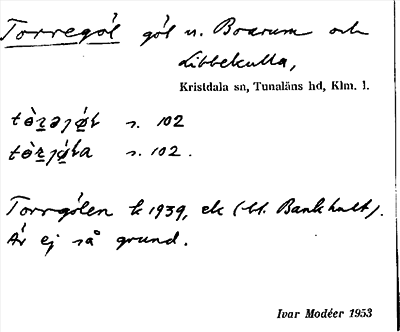 Torregöl göl n. Boarum och
Libbekulla,
Kristdala sn, Tunaläns hd, Klm. l.
s. 102
s. 102.
Torrgölen k 1939, ek (bl. Bankhult).
Är ej så grund.
Ivar Modéer 1953